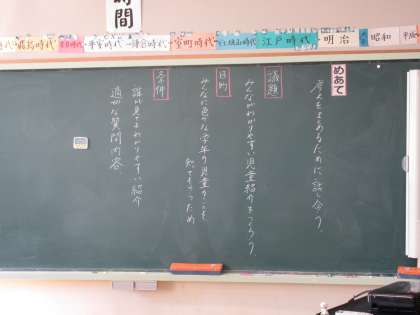 時間
時代
飛鳥時代
奈良時代
平安時代
鎌倉時代
室町時代
安土桃山時代
江戸時代
明治
大正
昭和
平成
めあて
考えをまとめるために話し合う。
議題
みんながわかりやすい児童紹介をつくろう
目的
みんなに色々な学年の児童のことを
知ってもらうため
条件
誰が見てもわかりやすい紹介
適切な質問内容